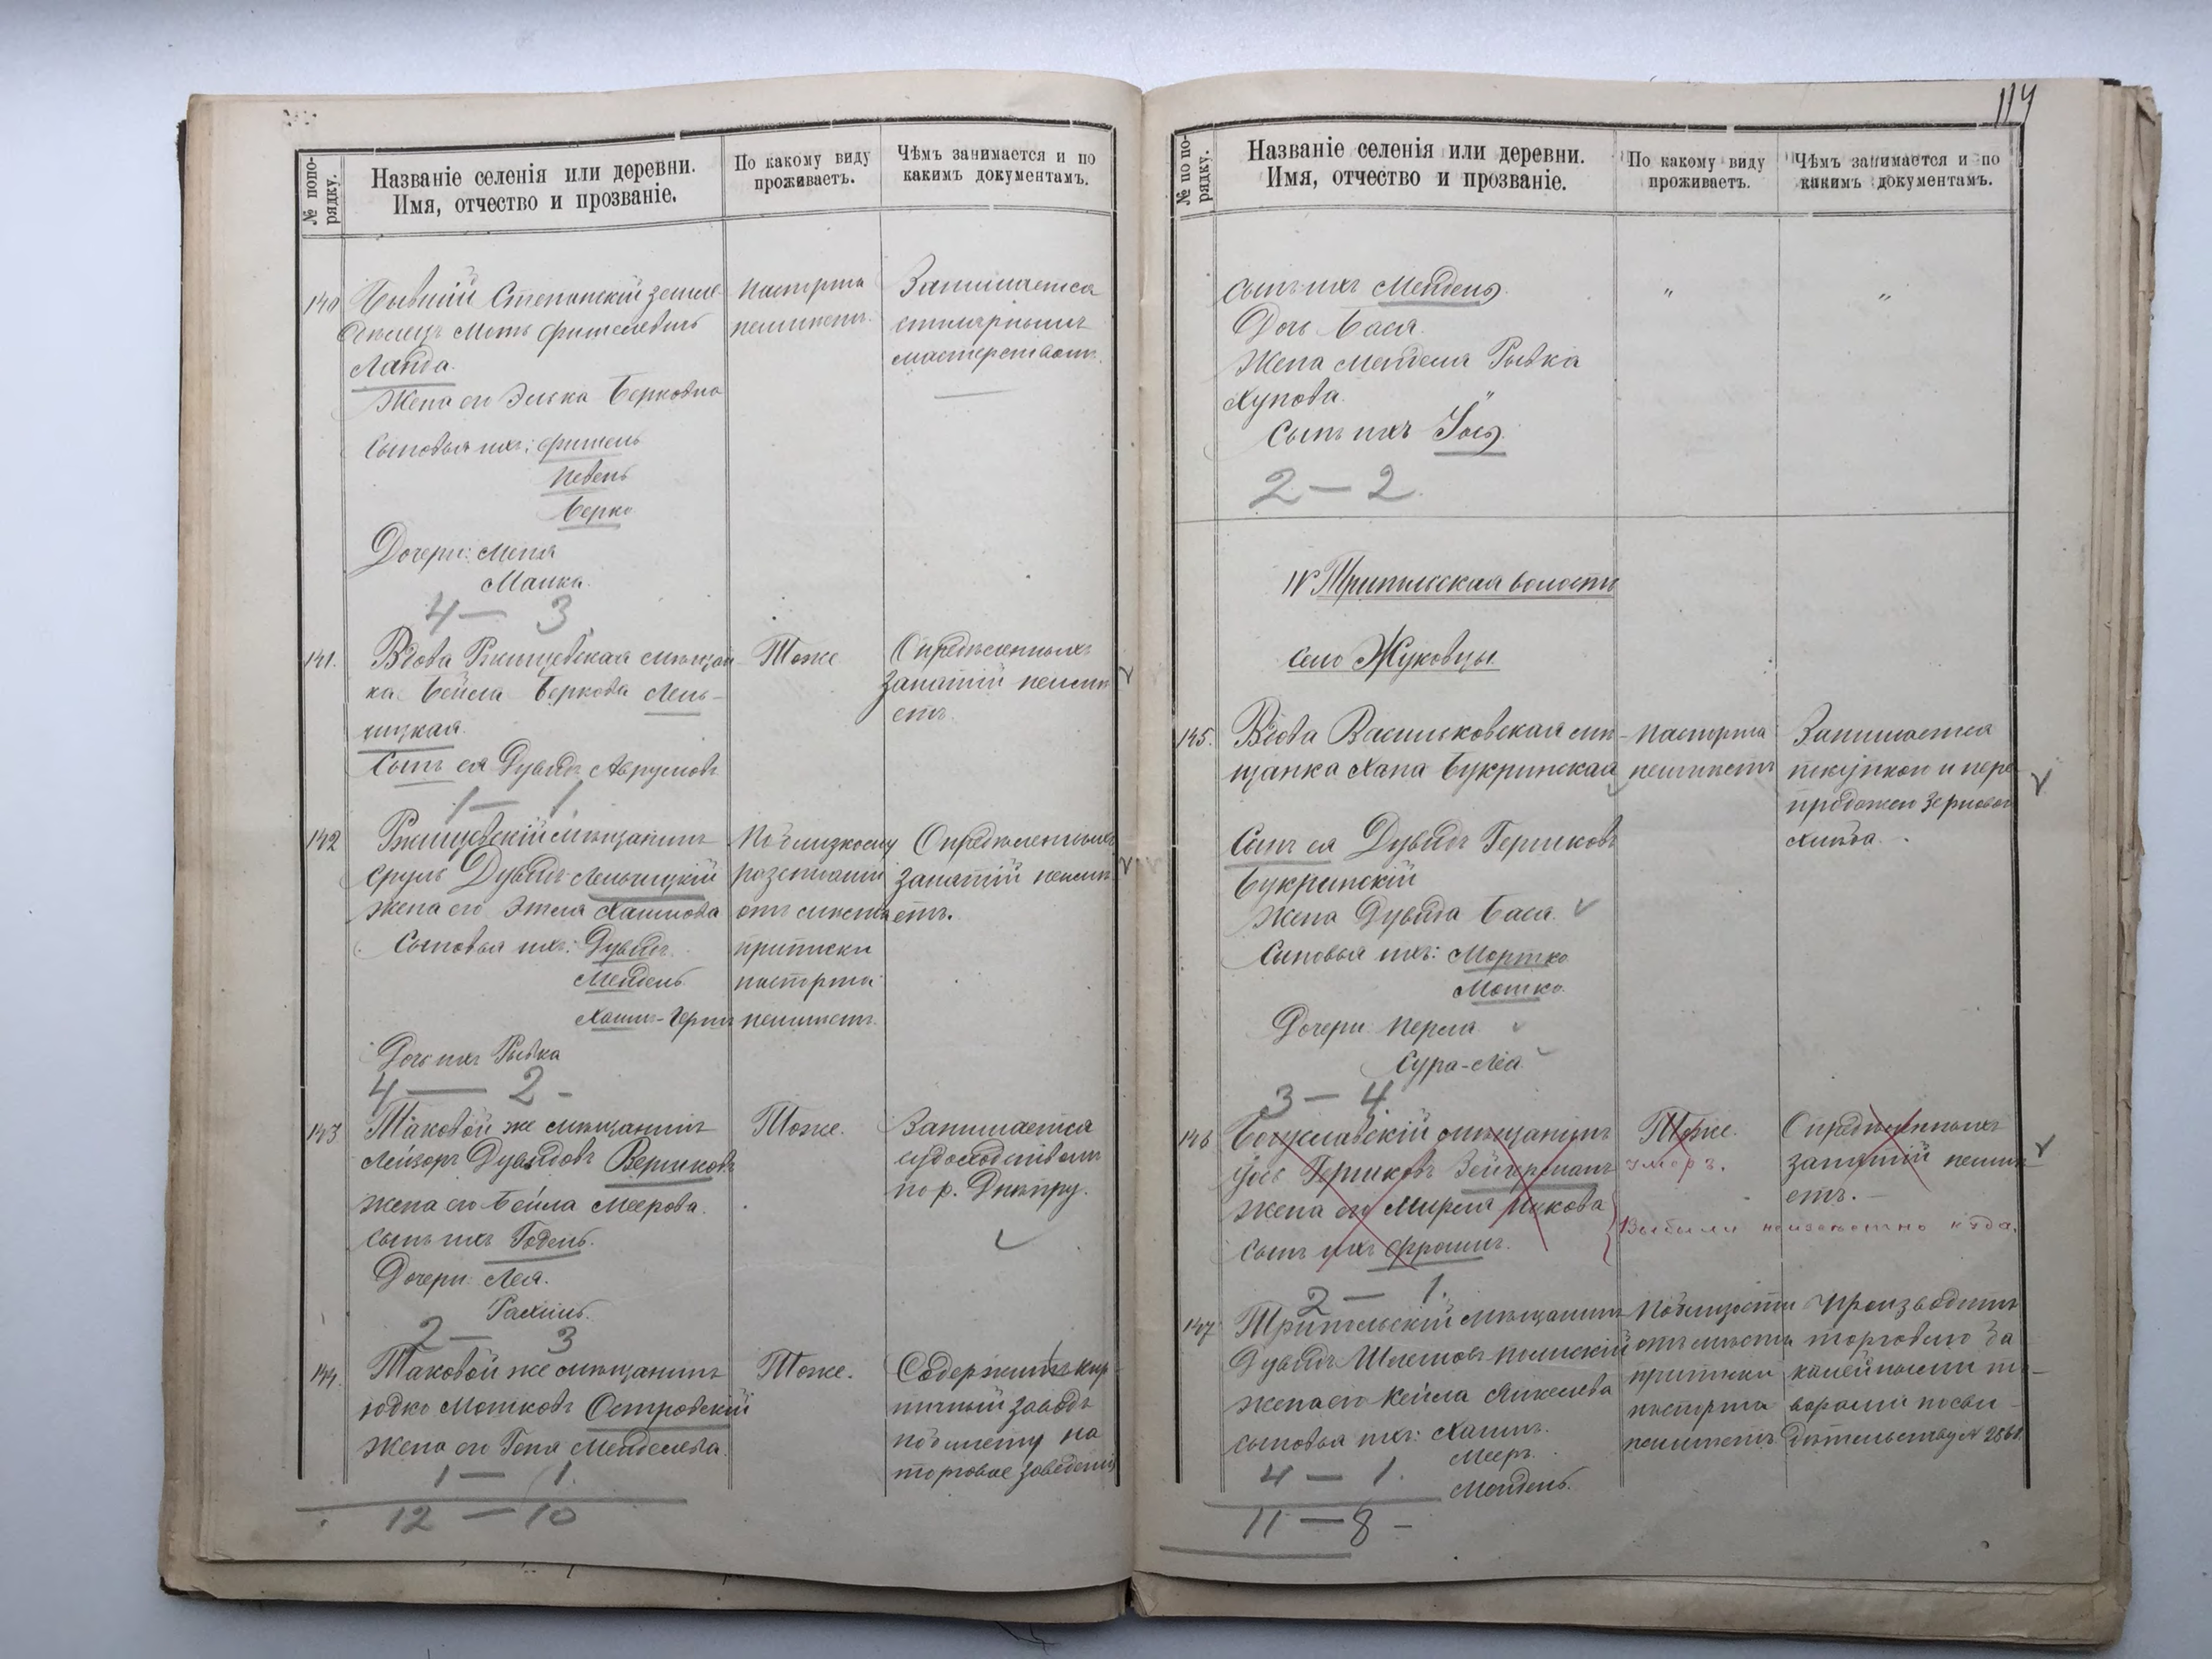 № попо-
рядку.
Названіе селенія или деревни.
Имя, отчество и прозваніе.
По какому виду
проживаетъ.
Чѣмъ занимается и по
какимъ документамъ.
140 Бывшій Степанскій земле-
Мота Фишелевичъ
Ланда.
Жена его Элька Берковна
Сыновья ихъ: Фишель
Левень
Берко
Дочери: Меня
Манка.
4 — 3
паспорта
неимѣетъ.
Занимается
столярнымъ
мастерствомъ.
141. Вдова Ржищевская мѣщан
ка Бейла Беркова Лень-
чицкая.
Сынъ ея Дувидъ Аврумовъ
1 — 1.
Тоже
Опредѣленныхъ
занятій неимѣ
етъ.
142 Ржищевскій мѣщанинъ
Сруль Дувидъ Леньчицкій
Жена его Этля Хаимова
Сыновья ихъ: Дувидъ.
Мендель
Хаимъ-Герш
Дочь ихъ Рывка
4 — 2 -
По близкому
разстоянію
отъ мѣста
приписки
паспорта
неимѣетъ.
Опредѣленныхъ
занятій неимѣ
етъ.
143 Таковой же мѣщанинъ
Лейзоръ Дувидовъ Вершковъ
Жена его Бейла Меерова.
Сынъ ихъ Годель.
Дочери: Лея.
Рахиль.
2 — 3
Тоже.
Занимается
судоходствомъ
по р. Днѣпру.
144. Таковой же мѣщанинъ
Юдко Мошковъ Островскій
Жена его Геня Менделева.
1 — 1.
12 — 10
Тоже.
Содержитъ кир
пичный заводъ
по билету на
торговое заведеніе
114
№ по по-
рядку.
Названіе селенія или деревни.
Имя, отчество и прозваніе.
По какому виду
проживаетъ.
Чѣмъ занимается и по
какимъ документамъ.
Сынъ ихъ Мендель.
Дочь Бася.
Жена Менделя Рывка
Хунова.
Сынъ ихъ
2 — 2.
"
"
IV Трипильская волость
село Жуковцы.
145. Вдова Васильковская мѣ-
щанка Хана Букринская
Сынъ ея Дувидъ Гершковъ
Букринскій
Жена Дувида Бася.
Сыновья ихъ: Мортко
Мошко.
Дочери: Перля
Сура-Лея
3 — 4.
паспорта
неимѣетъ
Занимается
покупкою и пере
продажею зерноваго
хлѣба.
146 Богуславскій мѣщанинъ
Іось Гершковъ Зейгерманъ
Жена его Мирля Ицкова
Сынъ ихъ Фроимъ.
2 — 1.
Тоже.
умеръ.
Опредѣленныхъ
занятій неимѣ
етъ. —
Выбыли неизвѣстно куда.
147 Трипольскій мѣщанинъ
Дувидъ
Жена его Кейла Янкелева
Сыновья ихъ: Хаимъ.
Мееръ.
Мендель.
4 — 1.
11 — 8 -
По близости
отъ мѣста
приписки
паспорта
неимѣетъ.
Производитъ
торговлю ба
калейными то-
варами по сви-
дѣтельству № 2561.